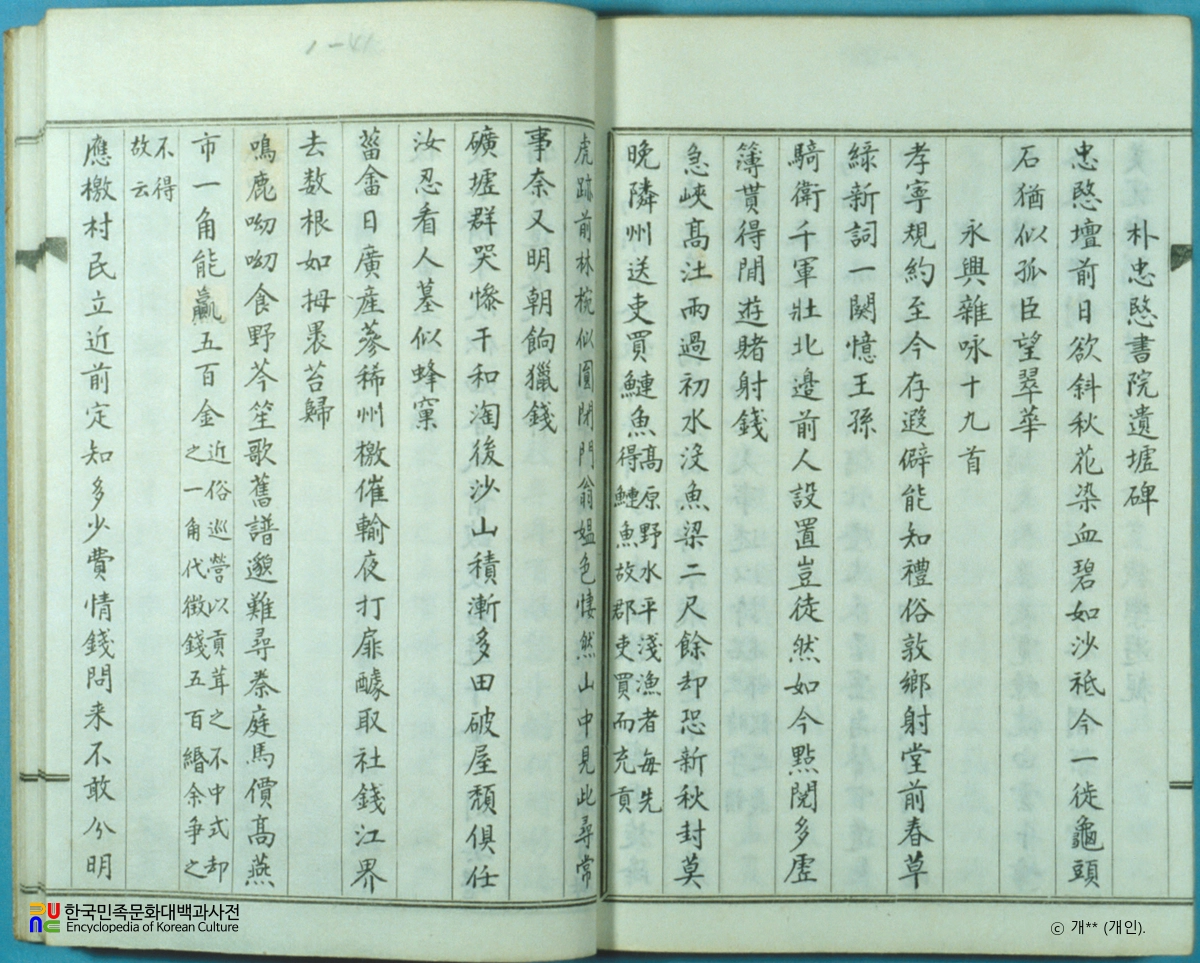 朴忠愍書院遺墟碑
忠愍壇前日欲斜秋花染血碧如沙祗今一徒龜頭
石猶似孤臣望翠華
永興雜咏十九首
孝寧規約至今存遐僻能知禮俗敦鄉射堂前春草
綠新詞一闋憶王孫
騎衛千軍壯北邉前人設置豈徒然如今點閱多虛
簿貰得閒遊賭射錢
急峽高江雨過初水沒魚梁二尺餘却恐新秋封莫
晚隣州送吏買鰱魚高原野水平淺漁者每先
得鰱魚故郡吏買而充貢
虎跡前林椀似圓閉門翁媼色悽然山中見此尋常
事奈又明朝餉獵錢
礦墟群哭慘干和淘後沙山積漸多田破屋頹俱任
汝忍看人墓似蜂窠
葘畬日廣産蔘稀州檄催輸夜打扉醵取社錢江界
去数根如拇裹苔歸
鳴鹿呦呦食野芩笙歌舊譜邈難尋桊庭馬價高燕
市一角能贏五百金近俗巡營以貢茸之不中式却
之一角代徵錢五百緡余爭之
不得
故云
應檄村民立近前定知多少費情錢問来不敢分明
1-41
한국민족문화대백과사전
Encyclopedia of Korean Culture
ⓒ 개** (개인).